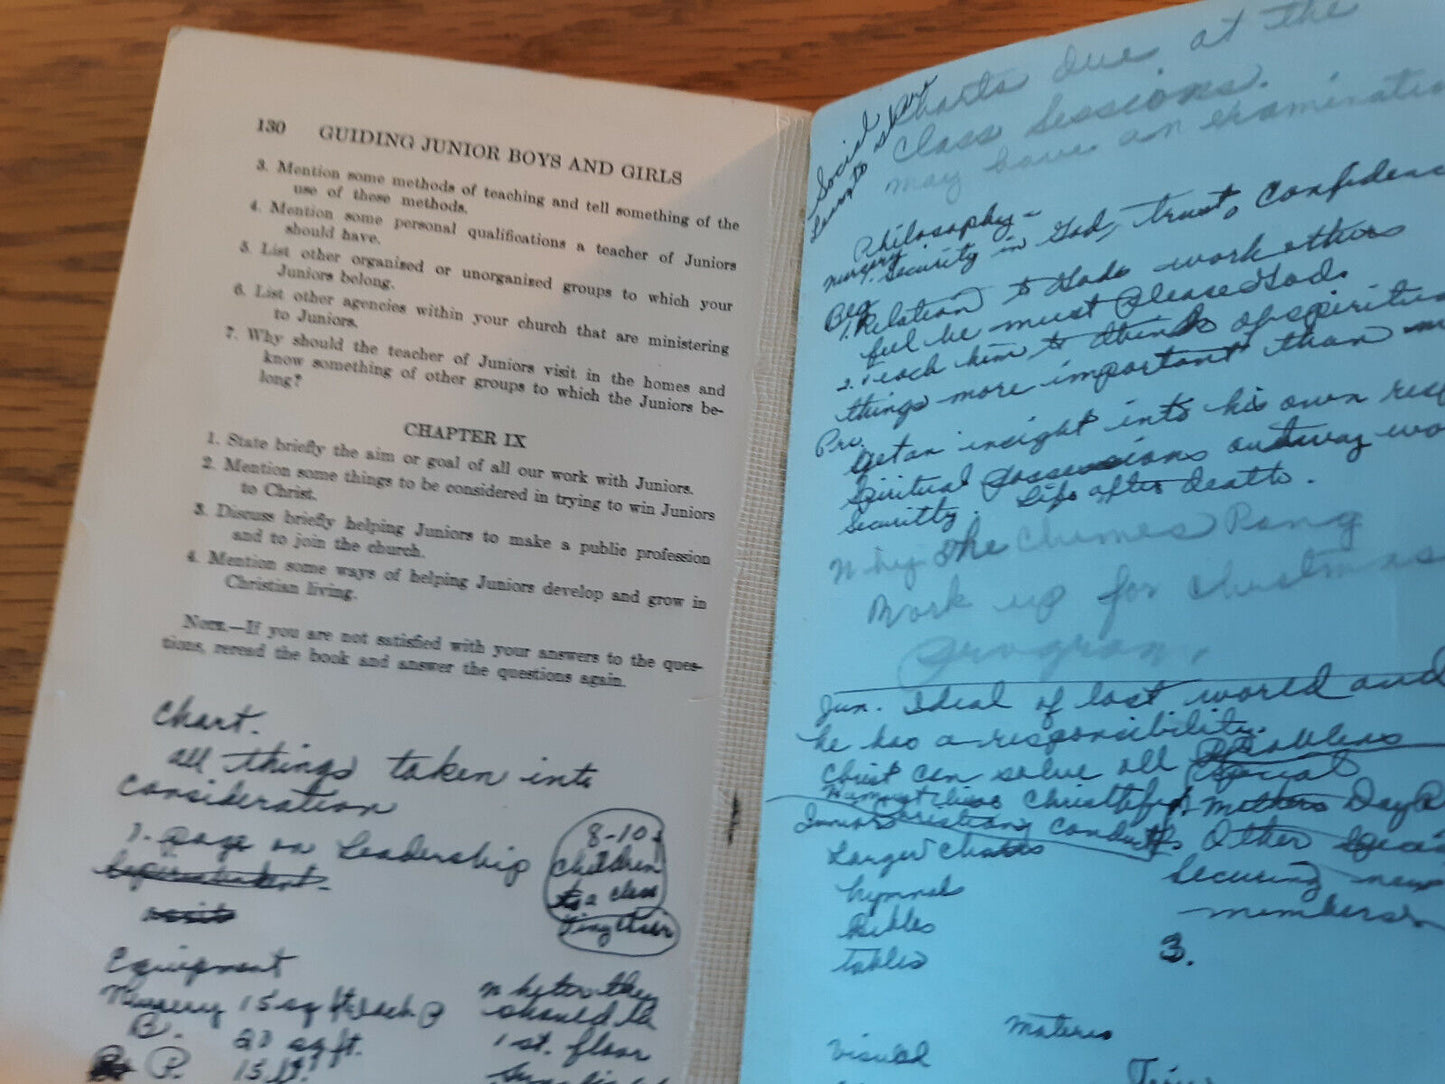 130 GUIDING JUNIOR BOYS AND GIRLS
3. Mention some methods of teaching and tell something of the
use of these methods.
4. Mention some personal qualifications a teacher of Juniors
should have.
5. List other organized or unorganized groups to which your
Juniors belong.
6. List other agencies within your church that are ministering
to Juniors.
7. Why should the teacher of Juniors visit in the homes and
know something of other groups to which the Juniors be-
long?
CHAPTER IX
1. State briefly the aim or goal of all our work with Juniors.
2. Mention some things to be considered in trying to win Juniors
to Christ.
3. Discuss briefly helping Juniors to make a public profession
and to join the church.
4. Mention some ways of helping Juniors develop and grow in
Christian living.
NOTE.—If you are not satisfied with your answers to the ques-
tions, reread the book and answer the questions again.
Chart.
all things taken into
Consideration
1. page on Leadership
8-10
children
to a class
Equipment
Nursery 15 sq ft each
B. 20 sq ft.
P. 15
should be
1st. floor
Social
Learn to share
Charts due at the
Class Sessions.
may have an examination
Philosophy-
nursery. Security in God, trust, Confidence
Beg
1. Relation to Gods work others
feel he must please God.
2. Teach him to think of spiritual
things more important than
Pri.
Get an insight into his own
Spiritual possessions
Security. Life after death.
Why the Chimes Rang
Work up for Christmas
program.
Jun. Ideal of lost world and
he has a responsibility.
Christ can solve all Problems
Special
Mothers Day
Other
Larger Chairs
Securing new
hymnals
members
Bibles
tables
3.
visual